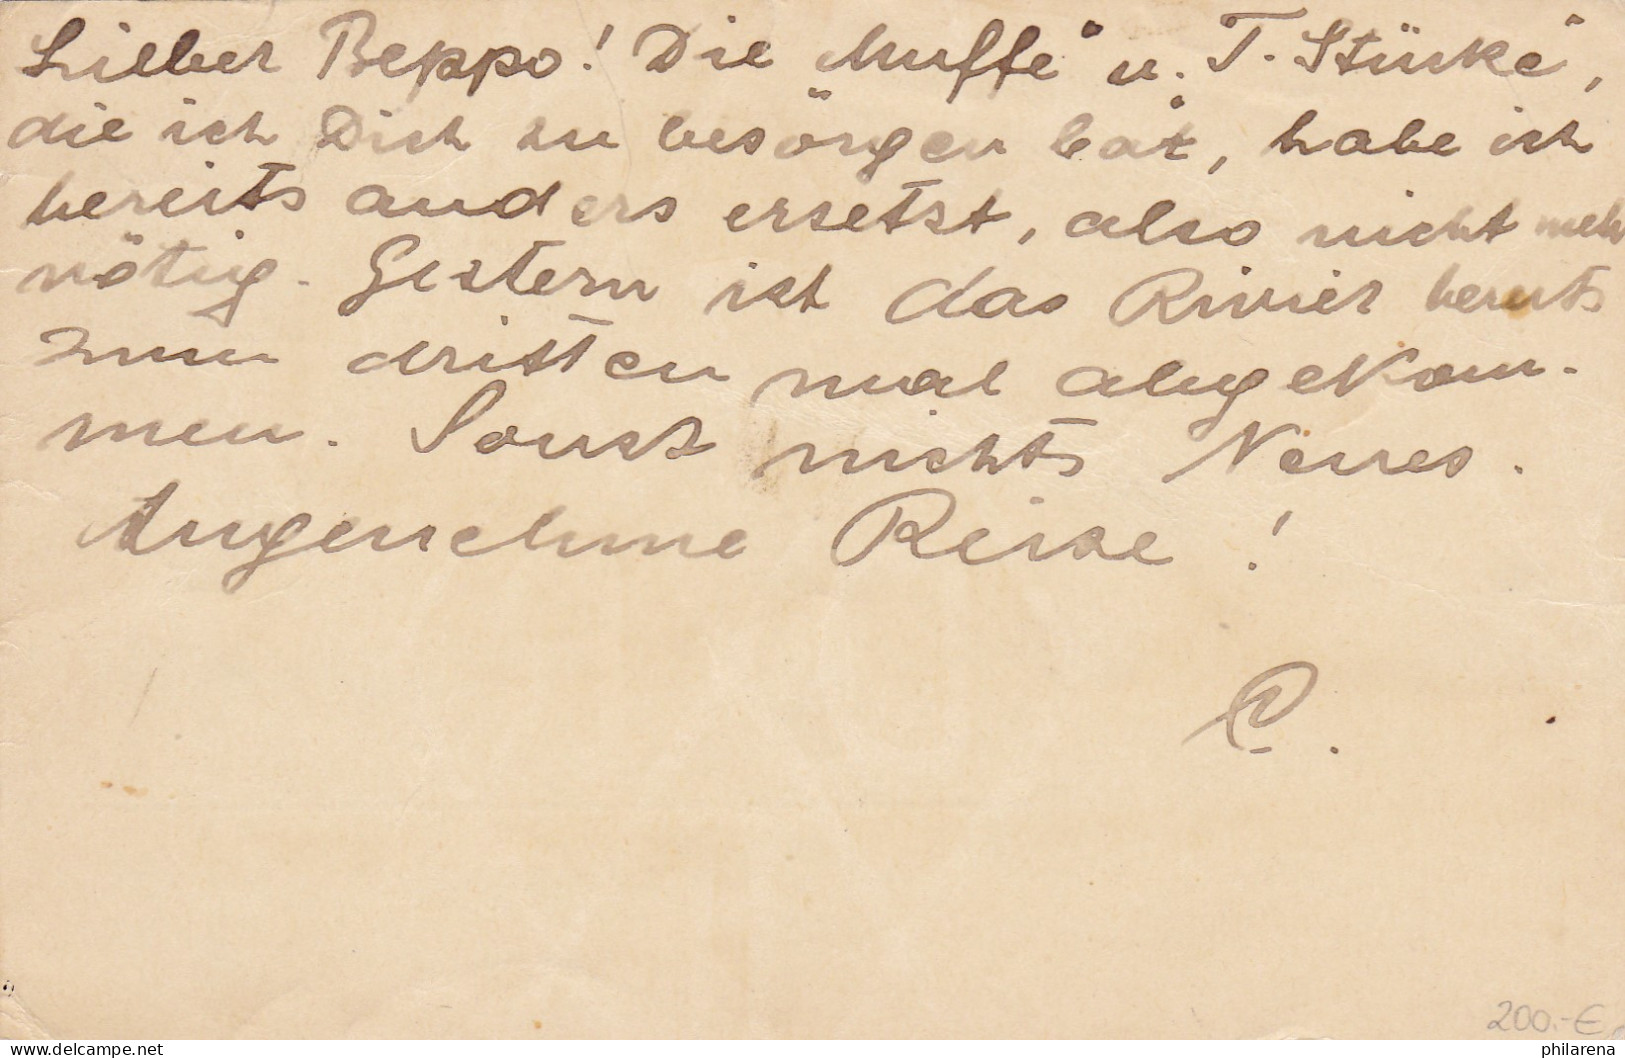 Lieber Beppo! Die Muffe u. T. Stücke,
die ich Dich zu besorgen bat, habe ich
bereits anders ersetzt, also nicht mehr
nötig. Gestern ist das Rivier bereits
zum dritten mal abgekom-
men. Sonst nichts Neues.
Angenehme Reise!
200.-€
philarena